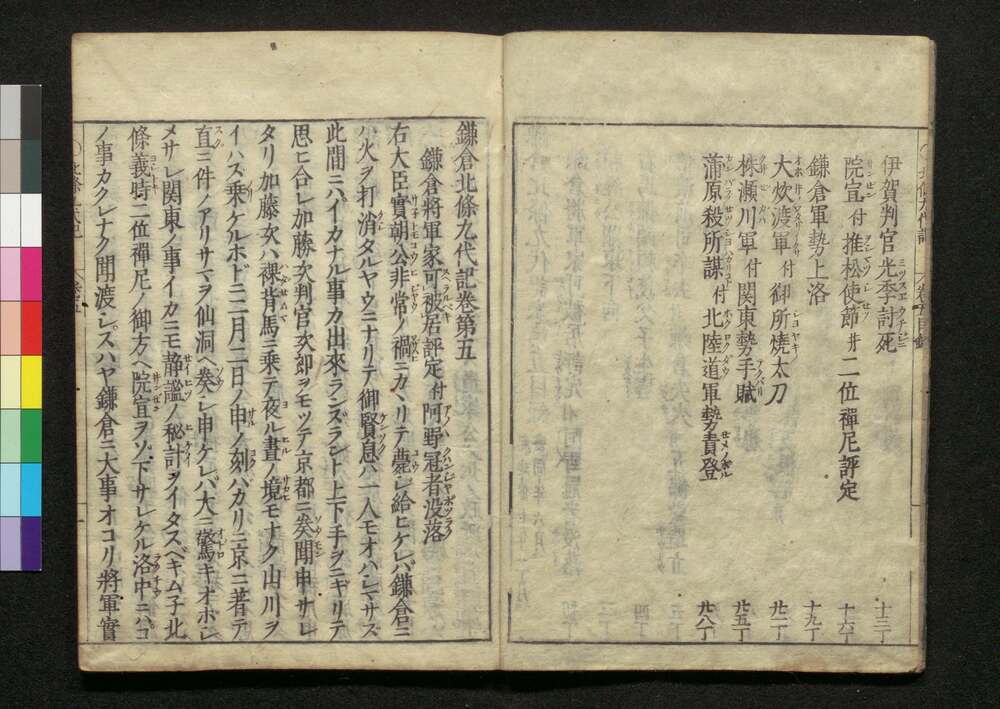 伊賀判官光季討死 十三丁
院宣付推松使節并二位禪尼評定 十六丁
鎌倉軍勢上洛 十九丁
大炊渡軍付御所燒太刀 廿一丁
株瀬川軍付関東勢手賦 廿五丁
蒲原殺所謀付北陸道軍勢責登 廿八丁
鎌倉北條九代記巻第五
鎌倉將軍家可被居評定付阿野冠者没落
右大臣實朝公非常ノ禍ニカヽリテ薨シ給ヒケレバ鎌倉ニ
ハ火ヲ打消タルヤウニナリテ御賢息ハ一人モオハシマサズ
此間ニハイカナル事カ出來ランズラント上下手ヲニギリテ
思ヒ合レ加藤次判官次郎ヲモツテ京都ニ奏聞申サレ
タリ加藤次ハ裸背馬ニ乗テ夜ル晝ノ境モナク山川ヲ
イハズ乗ケルホドニ二月二日ノ申ノ刻バカリニ京ニ著テ
直ニ件ノアリサマヲ仙洞ヘ奏シ申ケレバ大ニ驚キオボシ
メサレ関東ノ事イカニモ静謐ノ秘計ヲイタスベキム子北
條義時二位禪尼ノ御方ヘ院宣ヲソ下サレケル洛中ニハコ
ノ事カクレナク聞渡シスハヤ鎌倉ニ大事オコリ將軍實